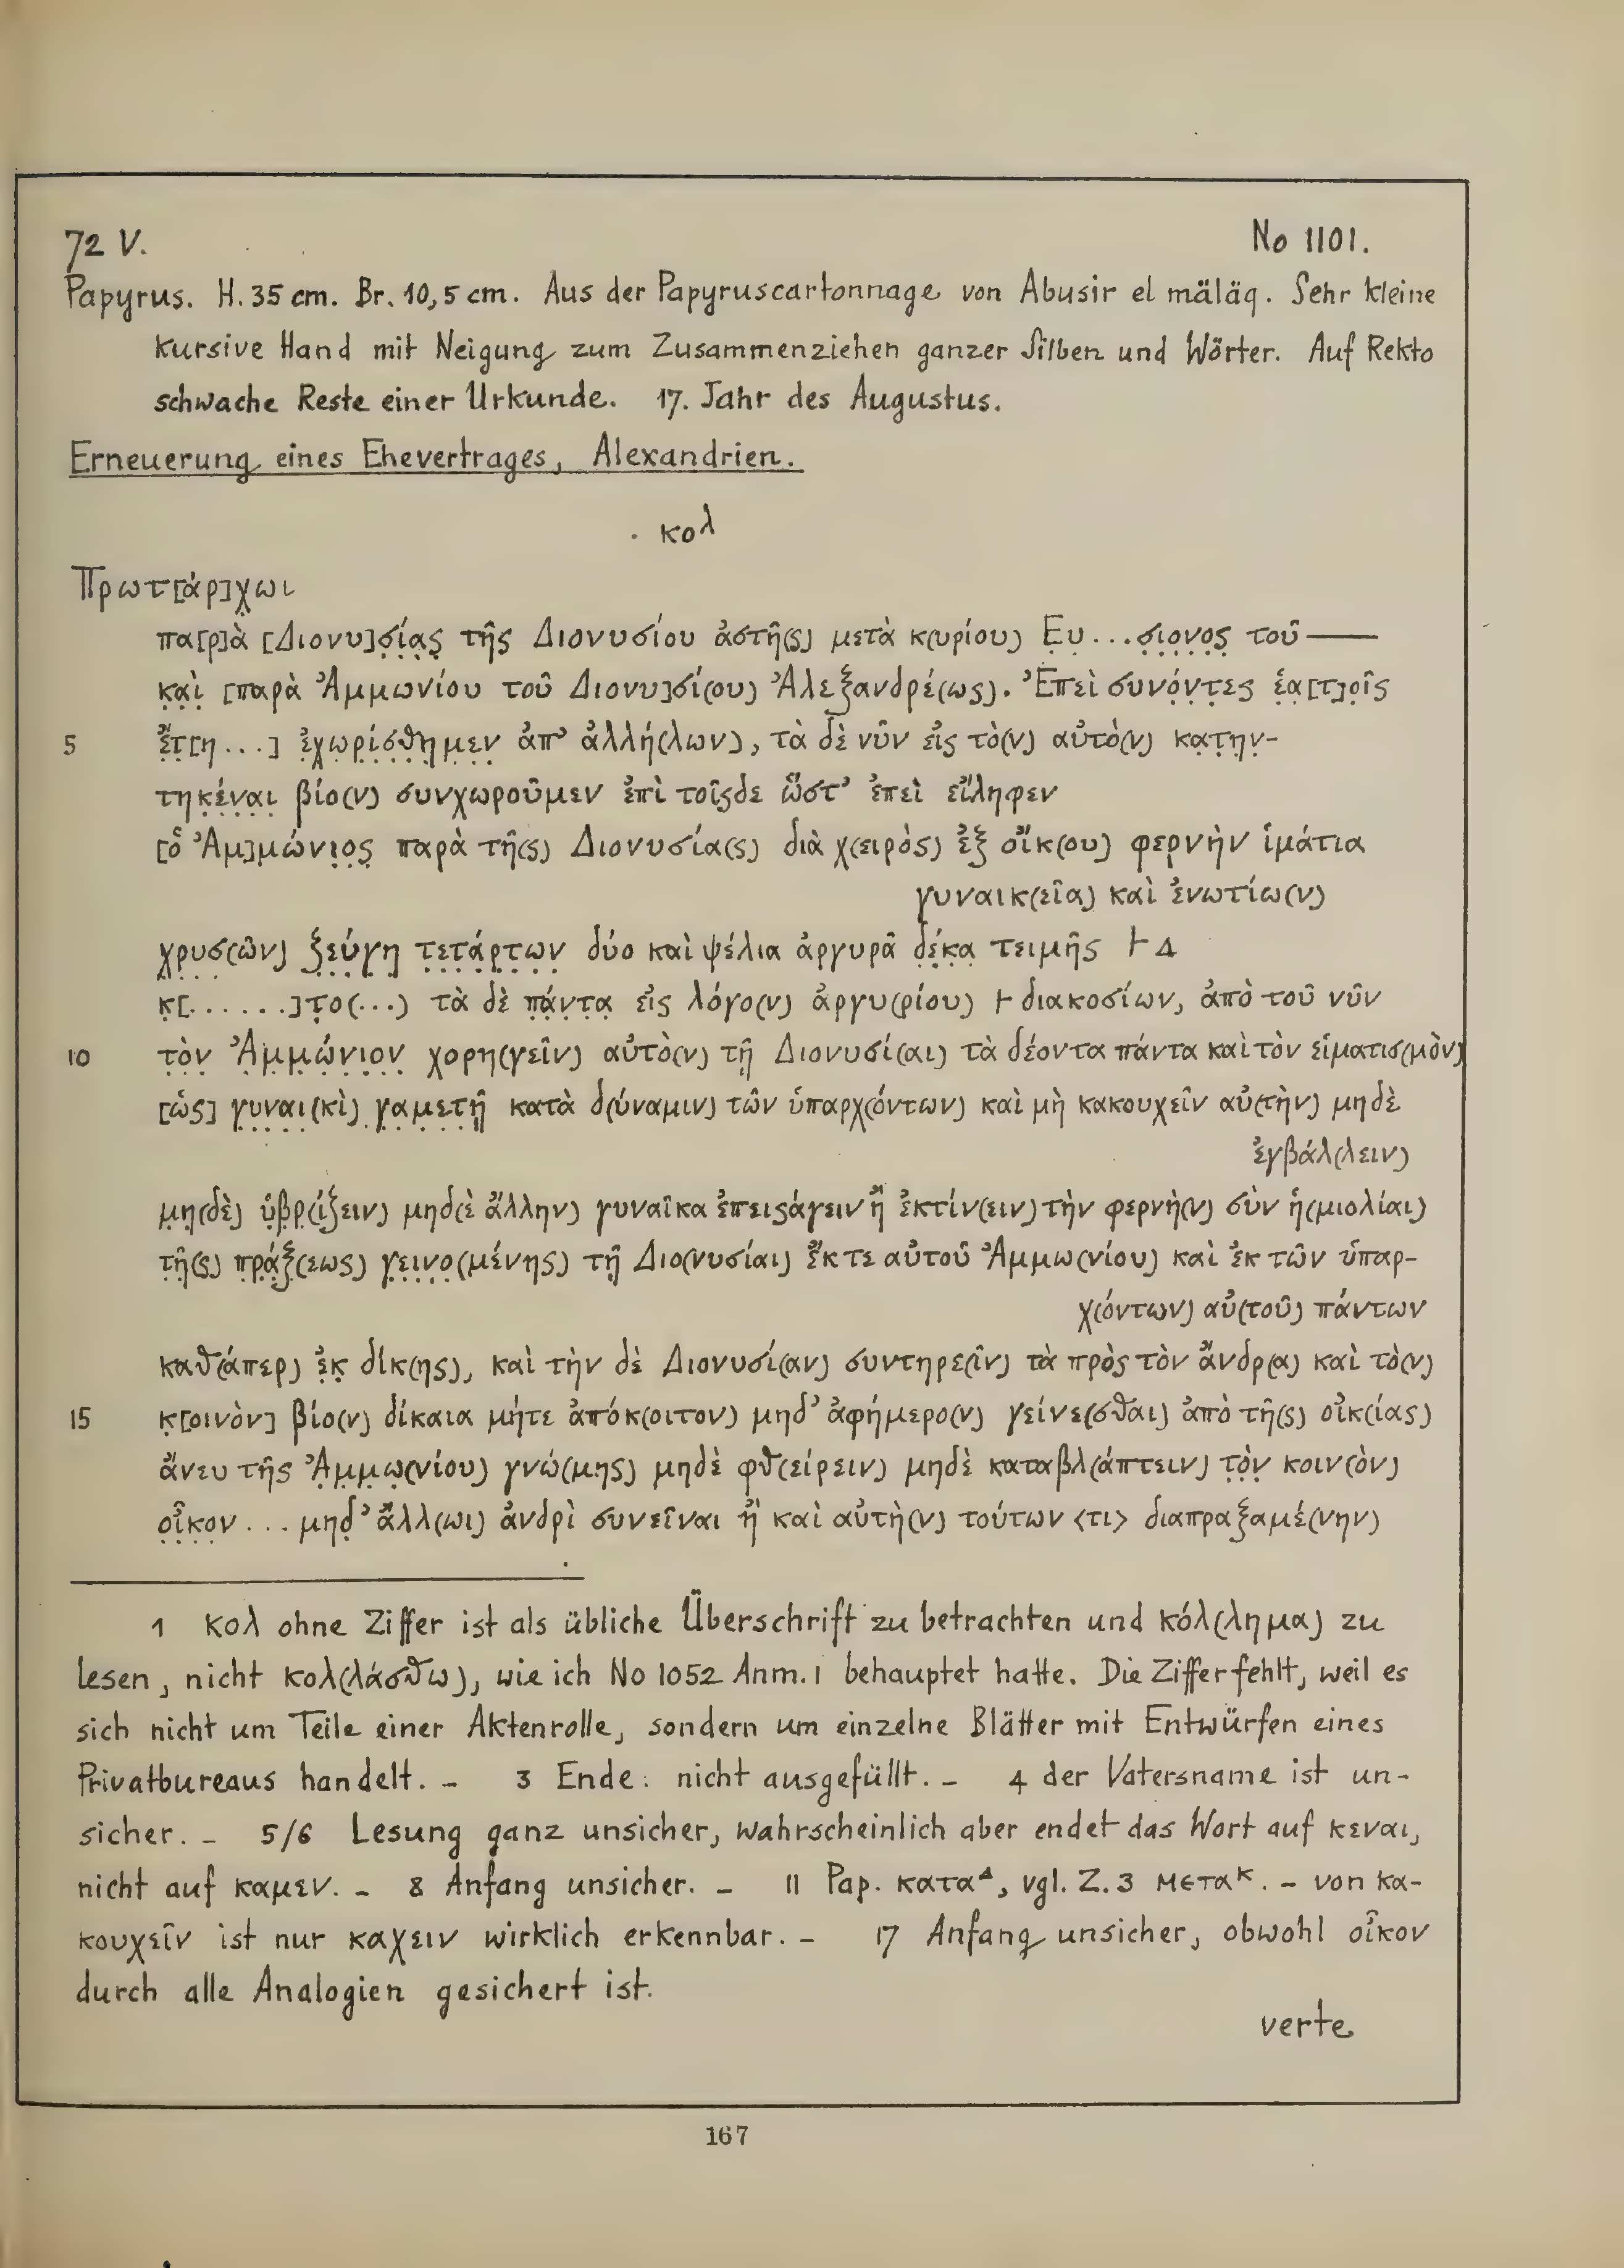 72 V.
No 1101.
Papyrus. H. 35 cm. Br. 10,5 cm. Aus der Papyruscartonnage von Abusir el mäläq. Sehr kleine
kursive Hand mit Neigung zum Zusammenziehen ganzer Silben und Wörter. Auf Rekto
schwache Reste einer Urkunde. 17. Jahr des Augustus.
Erneuerung eines Ehevertrages, Alexandrien.
κολ
Πρωτ[άρ]χ̣ωι
πα[ρ]ὰ [Διονυ]σ̣ί̣α̣ς̣ τῆς Διονυσίου ἀστῆ(ς) μετὰ κ(υρίου) Ε̣υ̣...σ̣ι̣ο̣ν̣ο̣ς̣ τοῦ —
κ̣α̣ὶ̣ [παρὰ Ἀμμωνίου τοῦ Διονυ]σί(ου) Ἀλεξανδρέ(ως). Ἐπεὶ συνό̣ν̣τ̣ε̣ς ἑ̣α̣[τ]ο̣ῖς
5 ἔ̣τ̣[η ...] ἐ̣χ̣ω̣ρ̣ί̣σ̣θ̣η̣μ̣ε̣ν̣ ἀπ’ ἀλλή(λων), τὰ δὲ νῦν εἰς τὸ(ν) αὐτὸ(ν) κ̣α̣τ̣η̣ν̣-
τηκ̣έ̣ν̣α̣ι̣ βίο(ν) συνχωροῦμεν ἐπὶ τοῖςδε ὥστ’ ἐπεὶ εἴληφεν
[ὁ Ἀμ]μώνι̣ο̣ς̣ παρὰ τῆ(ς) Διονυσία(ς) διὰ χ(ειρὸς) ἐξ οἴκ(ου) φερνὴν ἱμάτια
γυναικ(εῖα) καὶ ἐνωτίω(ν)
χ̣ρ̣υ̣σ(ῶν) ζ̣ε̣ύ̣γ̣η̣ τ̣ε̣τ̣ά̣ρ̣τ̣ω̣ν̣ δύο καὶ ψέλια ἀργυρᾶ δ̣έ̣κ̣α̣ τειμῆς 𐅂 Δ
κ̣[......]τ̣ο(...) τὰ δὲ π̣ά̣ν̣τ̣α̣ εἰς λόγο(ν) ἀργυ(ρίου) 𐅂 διακοσίων, ἀπὸ τοῦ νῦν
10 τ̣ὸ̣ν̣ Ἀ̣μ̣μ̣ώ̣ν̣ι̣ο̣ν̣ χορη(γεῖν) αὐτὸ(ν) τ̣ῇ Διονυσί(αι) τὰ δέοντα πάντα καὶ τὸν εἱματισ(μὸν)
[ὡς] γ̣υ̣ν̣α̣ι̣(κὶ) γ̣α̣μ̣ε̣τ̣ῇ̣ κατὰ δ(ύναμιν) τῶν ὑπαρχ(όντων) καὶ μὴ κακουχεῖν αὐ(τὴν) μηδὲ
ἐγβάλ(λειν)
μ̣η̣(δὲ) ὑ̣β̣ρ̣(ίζειν) μηδ(ὲ ἄλλην) γυναῖκα ἐπειςάγειν ἢ̣ ἐκτίν(ειν) τὴν φερνὴ(ν) σὺν ἡ(μιολίαι)
τ̣ῆ̣(ς) π̣ρ̣ά̣ξ̣(εως) γ̣ε̣ι̣ν̣ο̣(μένης) τῇ Διο(νυσίαι) ἔκ τε αὐτοῦ Ἀμμω(νίου) καὶ ἐκ τῶν ὑπαρ-
χ(όντων) αὐ(τοῦ) πάντων
καθ(άπερ) ἐ̣κ̣ δίκ(ης), καὶ τὴν δὲ Διονυσί(αν) συντηρε(ῖν) τὰ πρὸς τὸν ἄνδρ(α) καὶ τὸ(ν)
15 κ̣[οινὸν] βίο(ν) δίκαια μήτε ἀπόκ(οιτον) μηδ’ ἀφήμερο(ν) γείνε(σθαι) ἀπὸ τῆ(ς) οἰκ(ίας)
ἄνευ τῆς Ἀ̣μ̣μ̣ω̣(νίου) γνώ(μης) μηδὲ φθ(είρειν) μηδὲ καταβλ(άπτειν) τ̣ὸ̣ν̣ κοιν(ὸν)
ο̣ἶ̣κ̣ο̣ν̣ ... μηδ̣’ ἄλλ(ωι) ἀνδρὶ συνεῖναι ἢ̣ καὶ αὐτὴ(ν) τούτων <τι> διαπραξαμέ(νην)
1 κολ ohne Ziffer ist als übliche Überschrift zu betrachten und κόλ(λημα) zu
lesen, nicht κολ(λάσθω), wie ich No 1052 Anm. 1 behauptet hatte. Die Ziffer fehlt, weil es
sich nicht um Teile einer Aktenrolle, sondern um einzelne Blätter mit Entwürfen eines
Privatbureaus handelt. — 3 Ende: nicht ausgefüllt. — 4 der Vatersname ist un-
sicher. — 5/6 Lesung ganz unsicher, wahrscheinlich aber endet das Wort auf κεναι,
nicht auf καμεν. — 8 Anfang unsicher. — 11 Pap. καταΔ, vgl. Z. 3 μεταΚ. — von κα-
κουχεῖν ist nur καχειν wirklich erkennbar. — 17 Anfang unsicher, obwohl οἶκον
durch alle Analogien gesichert ist.
verte
167